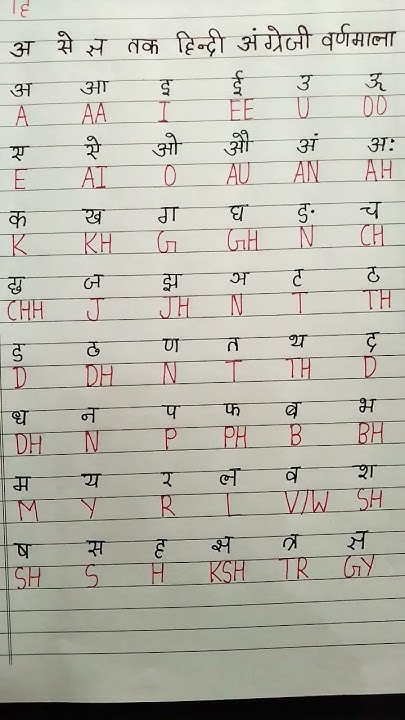 हि
अ से ज्ञ तक हिन्दी अंग्रेजी वर्णमाला
अ आ इ ई उ ऊ
A AA I EE U OO
ए ऐ ओ औ अं अः
E AI O AU AN AH
क ख ग घ ङ च
K KH G GH N CH
छ ज झ ञ ट ठ
CHH J JH N T TH
ड ढ ण त थ द
D DH N T TH D
ध न प फ ब भ
DH N P PH B BH
म य र ल व श
M Y R L V/W SH
ष स ह क्ष त्र ज्ञ
SH S H KSH TR GY